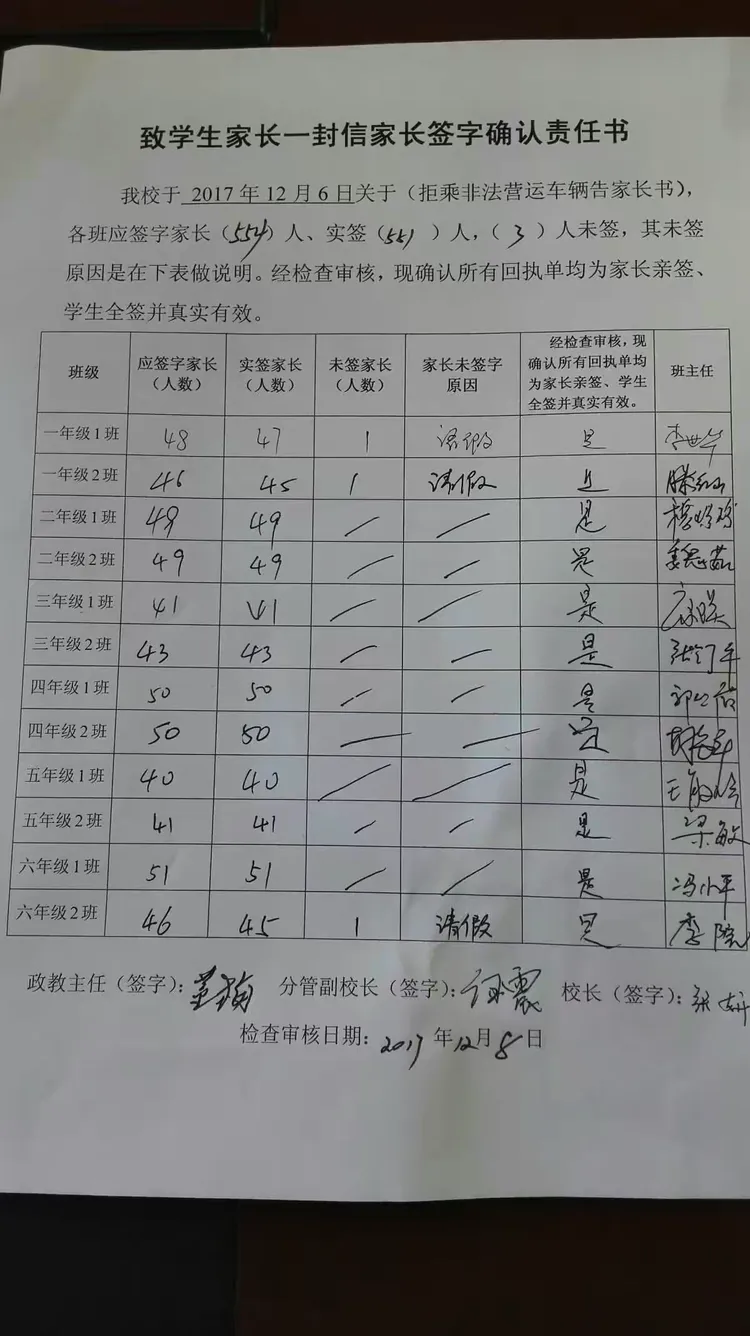 致学生家长一封信家长签字确认责任书
我校于 2017 年 12 月 6 日关于（拒乘非法营运车辆告家长书），
各班应签字家长（554）人、实签（551）人，（3）人未签，其未签
原因是在下表做说明。经检查审核，现确认所有回执单均为家长亲签、
学生全签并真实有效。
班级 应签字家长（人数） 实签家长（人数） 未签家长（人数） 家长未签字原因 经检查审核，现确认所有回执单均为家长亲签、学生全签并真实有效。 班主任
一年级1班 48 47 1 请假 是 李世华
一年级2班 46 45 1 请假 是
二年级1班 49 49 / / 是
二年级2班 49 49 / / 是
三年级1班 41 41 / / 是
三年级2班 43 43 / / 是
四年级1班 50 50 / / 是
四年级2班 50 50 / / 是
五年级1班 40 40 / / 是
五年级2班 41 41 / / 是 梁敏
六年级1班 51 51 / / 是 冯小平
六年级2班 46 45 1 请假 是 李院
政教主任（签字）： 分管副校长（签字）：何震 校长（签字）：张妍
检查审核日期：2017年12月8日